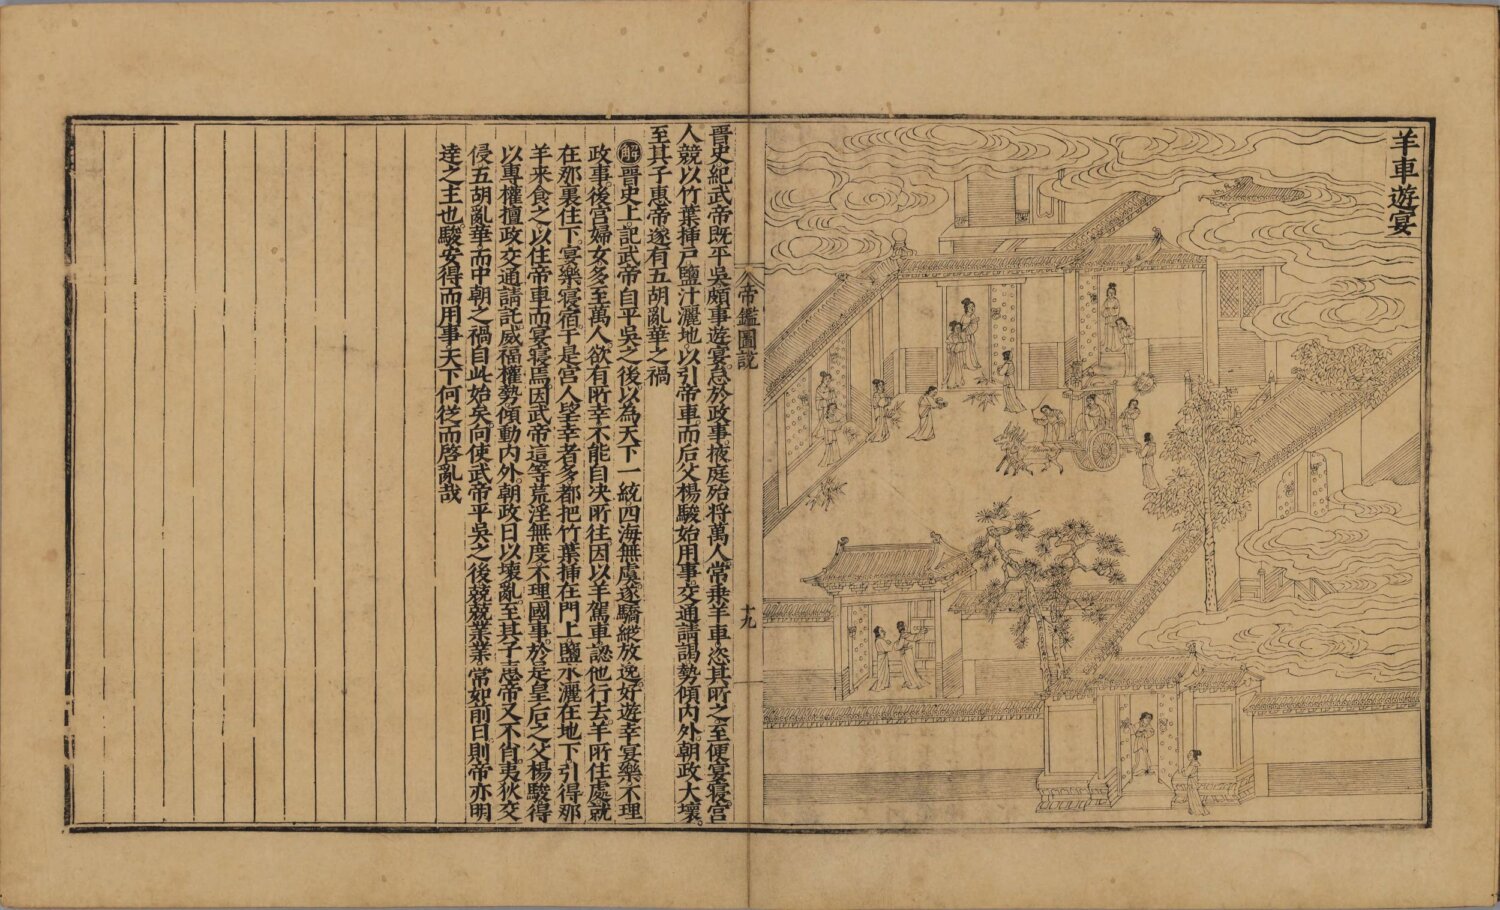 羊車遊宴
帝鑑圖說
十九
晉史紀武帝既平吳頗事遊宴怠於政事掖庭殆將萬人常乘羊車恣其所之至便宴寢宮
人競以竹葉揷戶鹽汁灑地以引帝車而后父楊駿始用事交通請謁勢傾內外朝政大壞
至其子惠帝遂有五胡亂華之禍
解晉史上記武帝自平吳之後以為天下一統四海無虞遂驕縱放逸好遊幸宴樂不理
政事後宮婦女多至萬人欲有所幸不能自决所往因以羊駕車認他行去羊所住處就
在那裏住下宴樂寢宿于是宮人望幸者多都把竹葉揷在門上鹽水灑在地下引得那
羊來食之以住帝車而宴寢焉因武帝這等荒淫無度不理國事於是皇后之父楊駿得
以專權擅政交通請託威福權勢傾動內外朝政日以壞亂至其子惠帝又不肖夷狄交
侵五胡亂華而中朝之禍自此始矣向使武帝平吳之後兢兢業業常如前日則帝亦明
達之主也駿安得而用事天下何從而啓亂哉